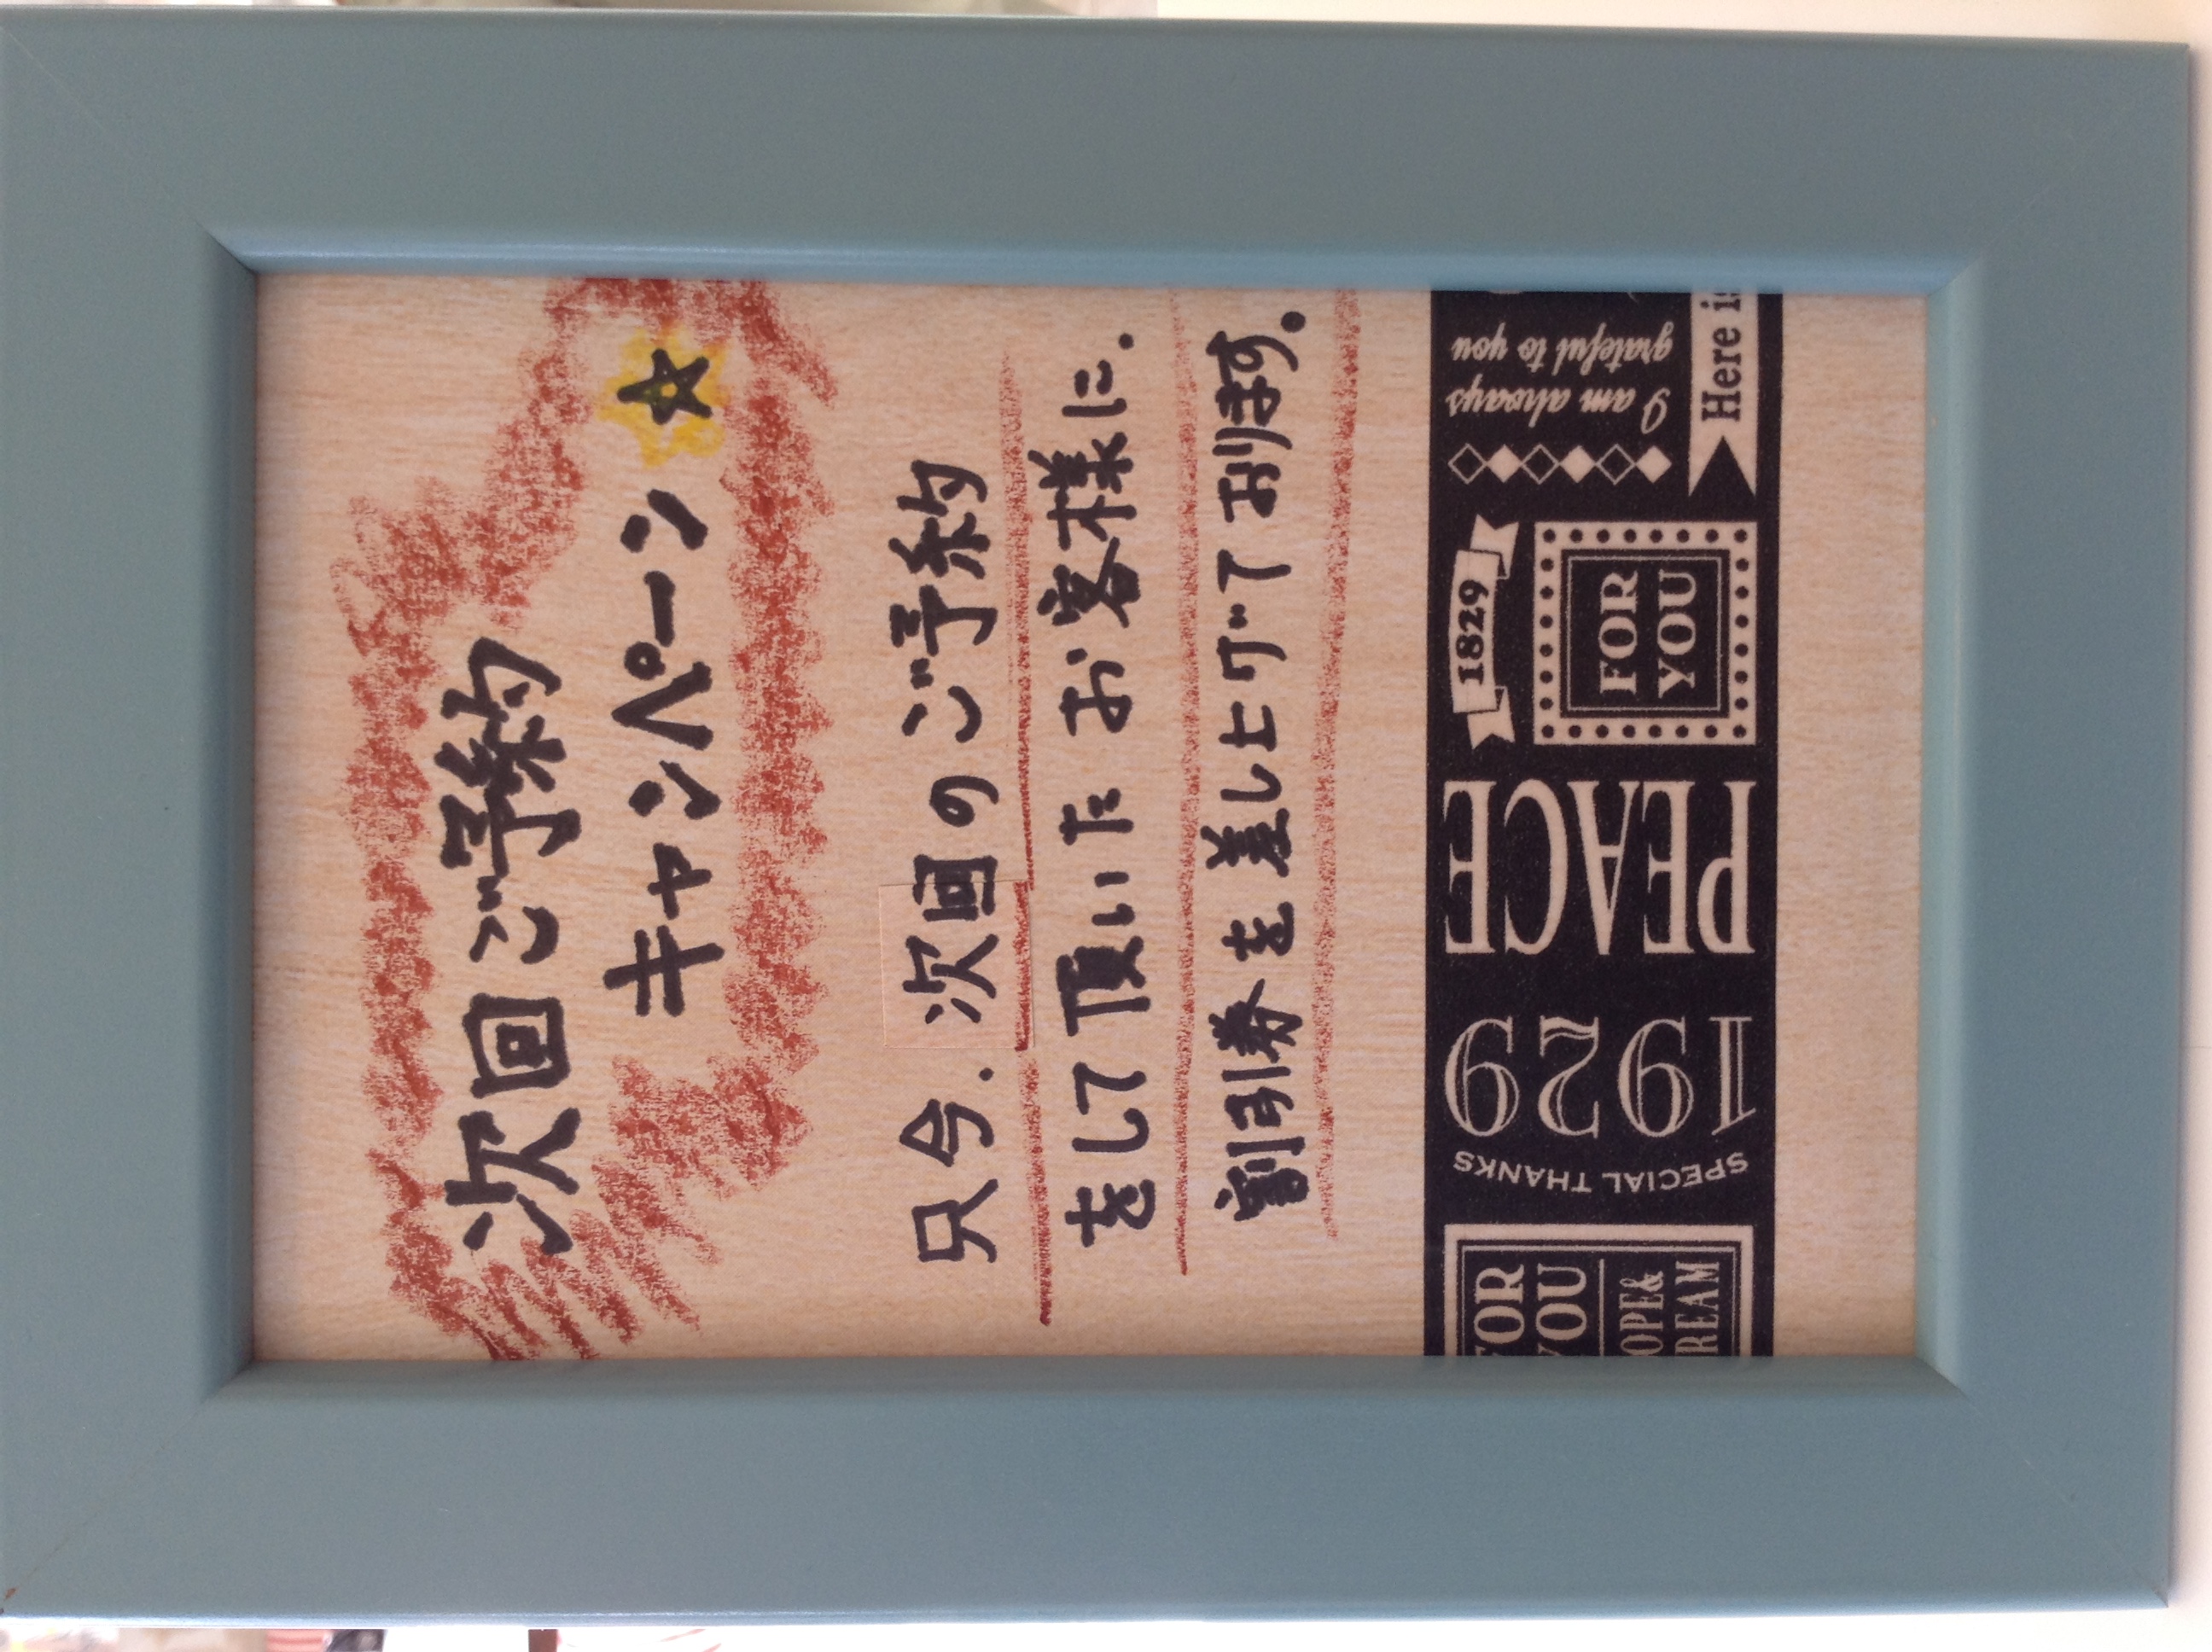 次回ご予約
キャンペーン☆
只今、次回のご予約
をして頂いたお客様に、
割引券を差し上げております。
FOR
YOU
SPECIAL THANKS
1929
PEACE
1829
FOR
YOU
I am always
grateful to you
Here is